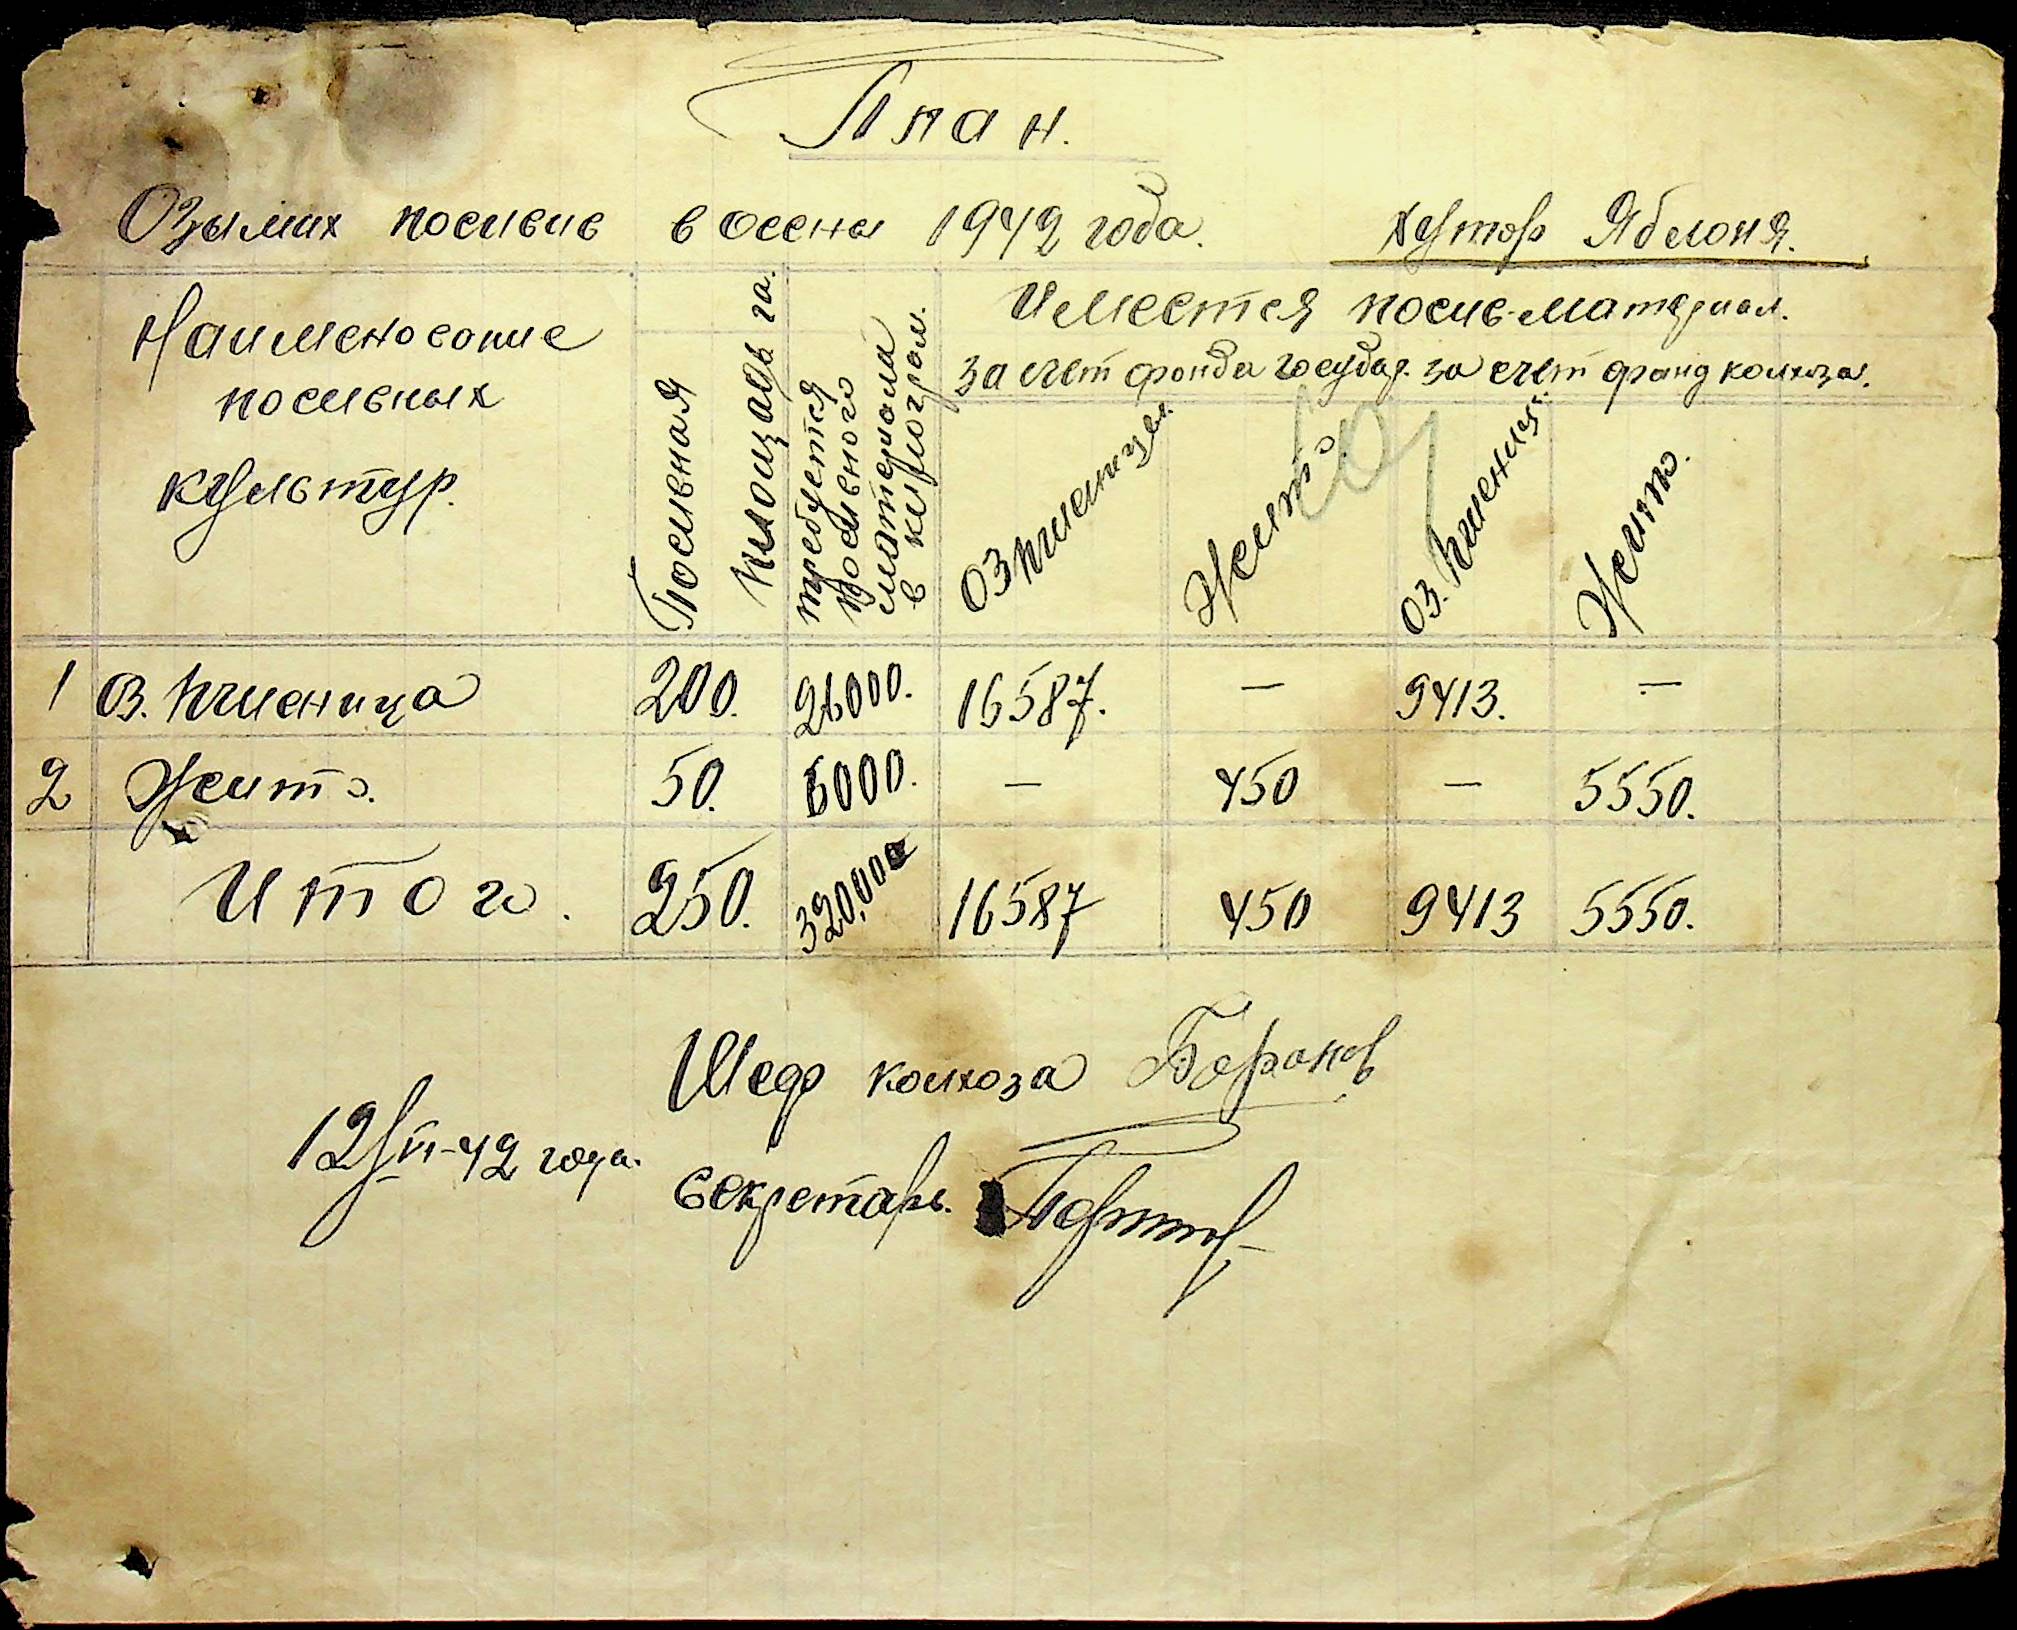 План.
Озымих посивив в осени 1942 года. хутор Яблоня.
Наименование посивных культур.
Посивная площадь га.
требуется посивного материала в килограм.
Имеется посив-материал.
за счет фонда государ. за счет фонд колхоза.
Оз пшеница
Жито
Оз. пшениця
Жито.
1 Оз. пшеница 200. 26000. 16587. — 9413. —
2 Жито. 50. 6000. — 450 — 5550.
Итого. 250. 320,000 16587 450 9413 5550.
Шеф колхоза Боранов
12/VII-42 года.
Секретарь.